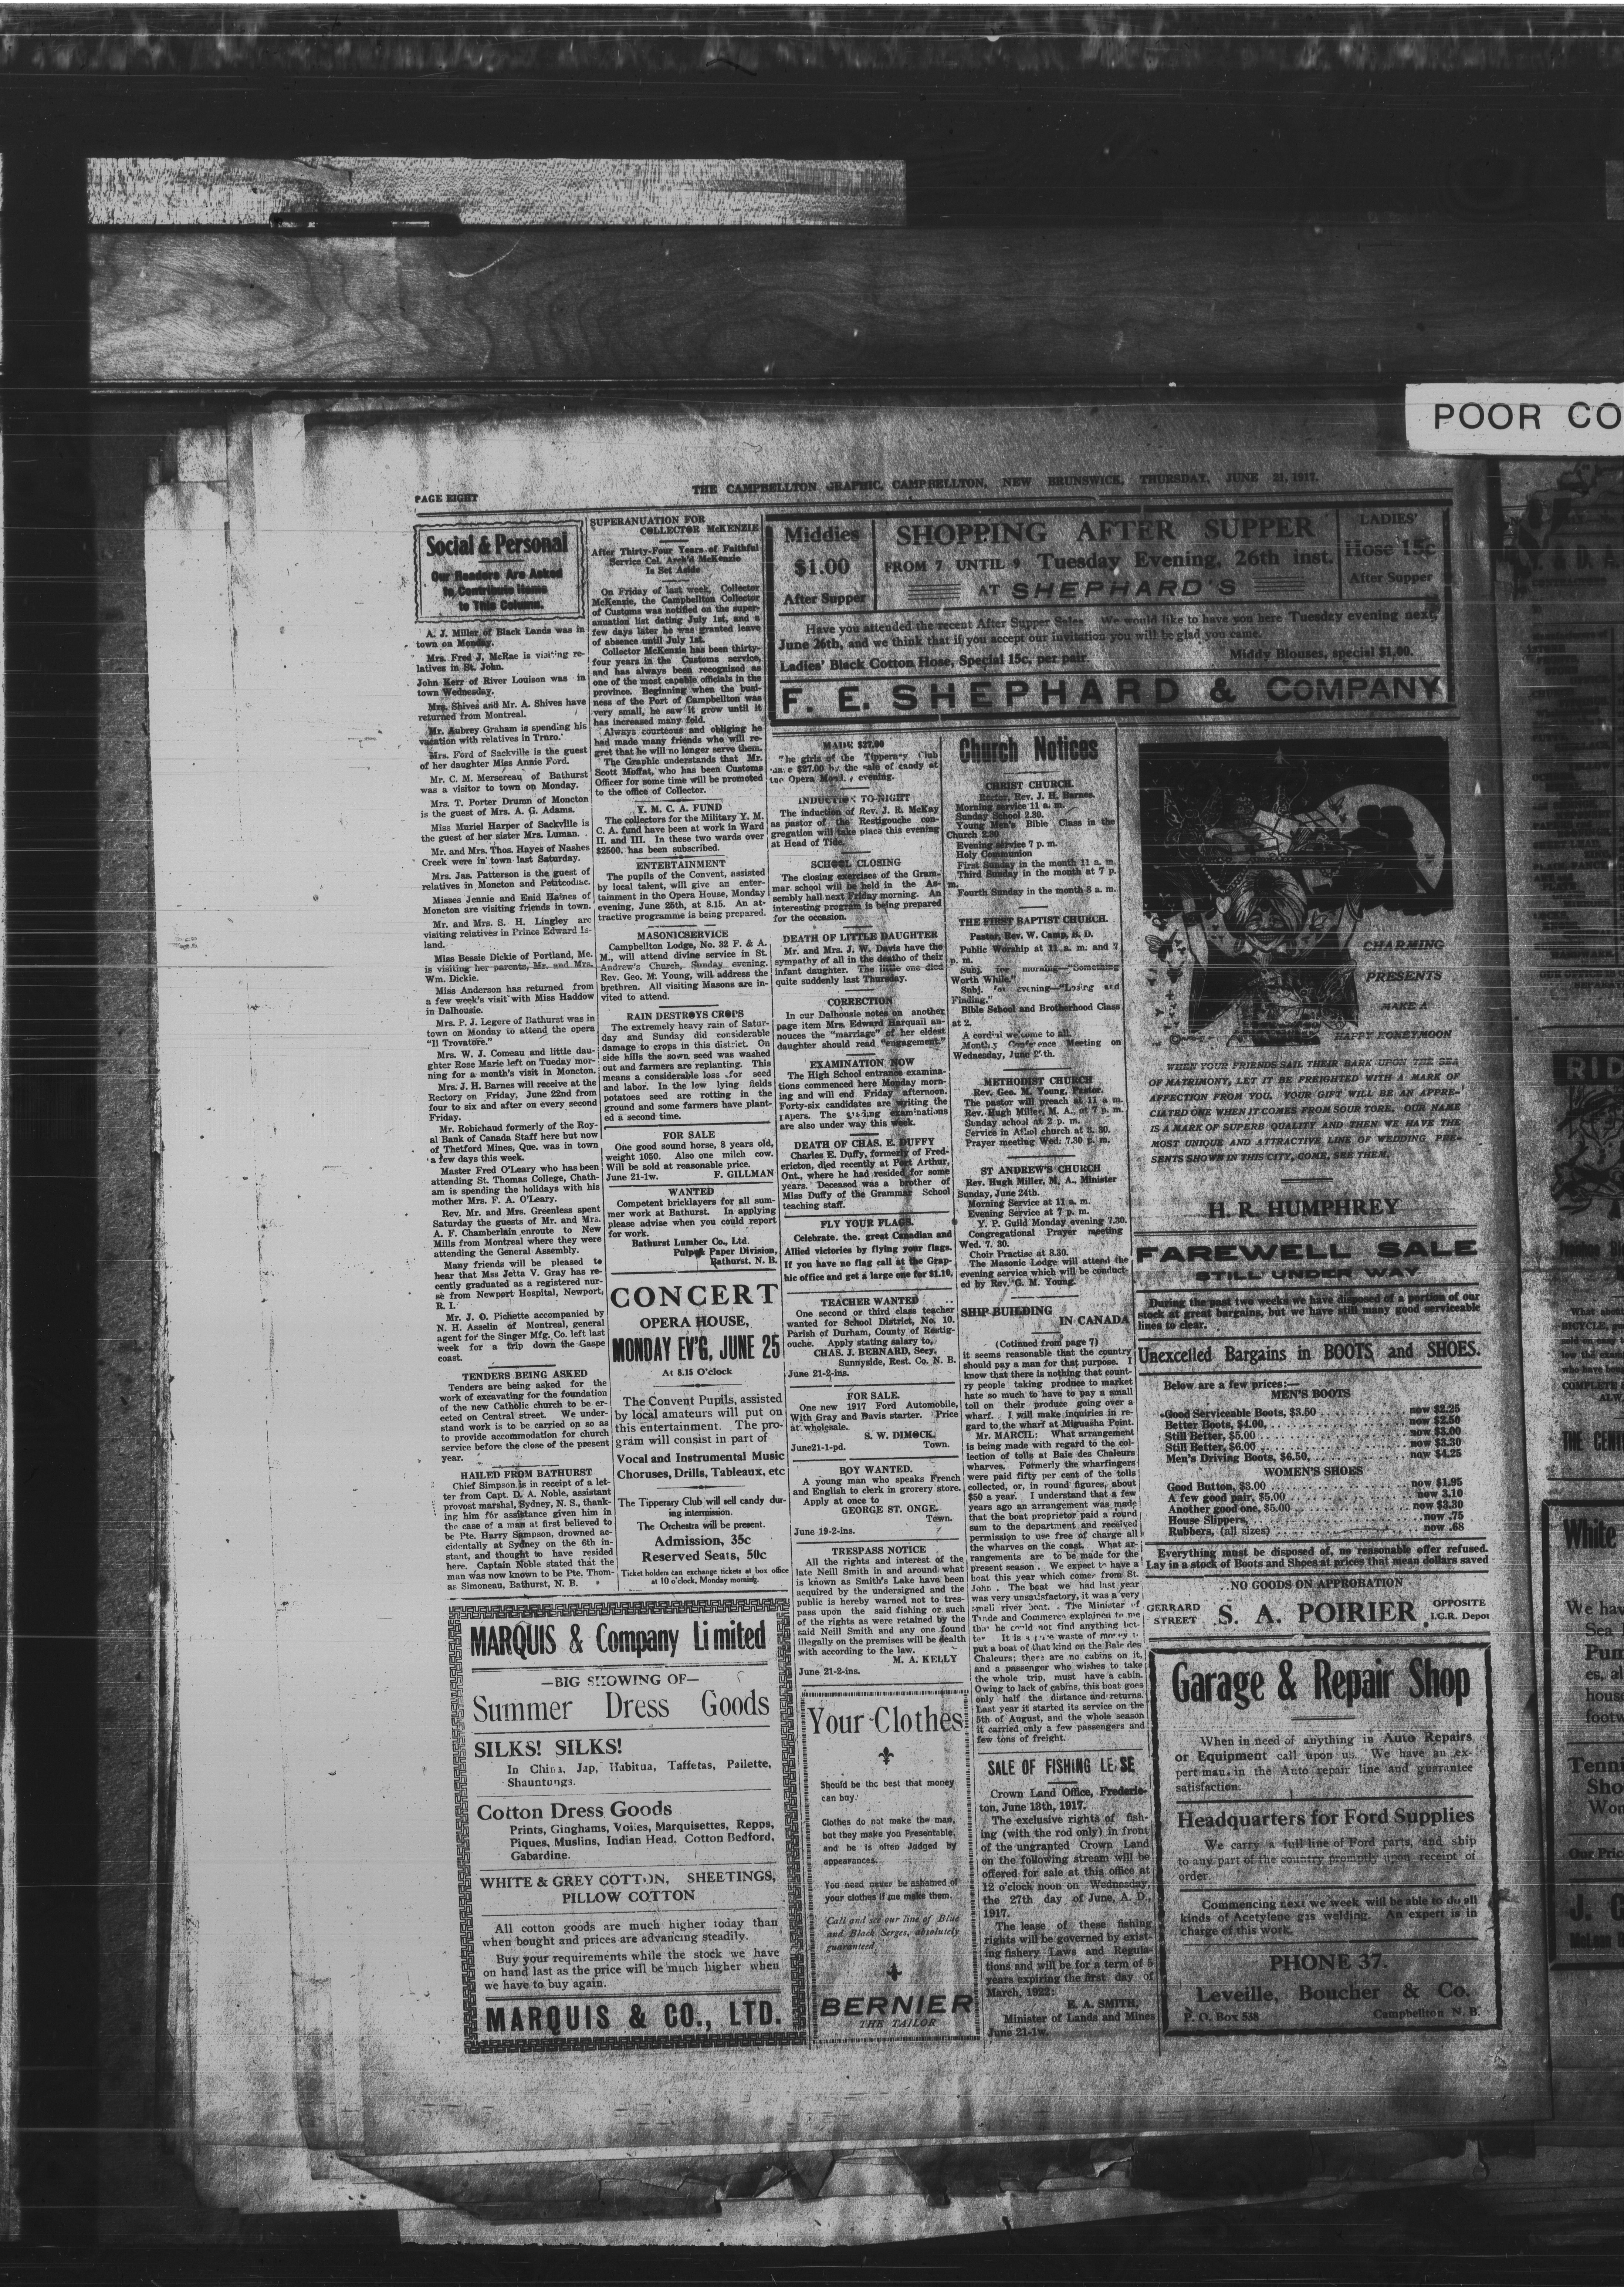 POOR CO
PAGE EIGHT
THE CAMPBELLTON GRAPHIC, CAMPBELLTON, NEW BRUNSWICK, THURSDAY, JUNE 21, 1917.
Social & Personal
Our Readers Are Asked
to Contribute Items
to This Column.
A. J. Miller of Black Lands was in
town on Monday.
Mrs. Fred J. McRae is visiting re-
latives in St. John.
John Kerr of River Louison was in
town Wednesday.
Mrs. Shives and Mr. A. Shives have
returned from Montreal.
Mr. Aubrey Graham is spending his
vacation with relatives in Truro.
Mrs. Ford of Sackville is the guest
of her daughter Miss Annie Ford.
Mr. C. M. Mersereau of Bathurst
was a visitor to town on Monday.
Mrs. T. Porter Drumn of Moncton
is the guest of Mrs. A. G. Adams.
Miss Muriel Harper of Sackville is
the guest of her sister Mrs. Luman.
Mr. and Mrs. Thos. Hayes of Nashes
Creek were in town last Saturday.
Mrs. Jas. Patterson is the guest of
relatives in Moncton and Petitcodiac.
Misses Jennie and Enid Haines of
Moncton are visiting friends in town.
Mr. and Mrs. S. H. Lingley are
visiting relatives in Prince Edward Is-
land.
Miss Bessie Dickie of Portland, Me.
is visiting her parents, Mr. and Mrs.
Wm. Dickie.
Miss Anderson has returned from
a few week's visit with Miss Haddow
in Dalhousie.
Mrs. P. J. Legere of Bathurst was in
town on Monday to attend the opera
"Il Trovatore."
Mrs. W. J. Comeau and little dau-
ghter Rose Marie left on Tueday mor-
ning for a month's visit in Moncton.
Mrs. J. H. Barnes will receive at the
Rectory on Friday, June 22nd from
four to six and after on every second
Friday.
Mr. Robichaud formerly of the Roy-
al Bank of Canada Staff here but now
of Thetford Mines, Que. was in town
a few days this week.
Master Fred O'Leary who has been
attending St. Thomas College, Chath-
am is spending the holidays with his
mother Mrs. F. A. O'Leary.
Rev. Mr. and Mrs. Greenless spent
Saturday the guests of Mr. and Mrs.
A. F. Chamberlain enroute to New
Mills from Montreal where they were
attending the General Assembly.
Many friends will be pleased to
hear that Mss Jetta V. Gray has re-
cently graduated as a registered nur-
se from Newport Hospital, Newport,
R. I.
Mr. J. O. Pichette accompanied by
N. H. Asselin of Montreal, general
agent for the Singer Mfg. Co. left last
week for a trip down the Gaspe
coast.
TENDERS BEING ASKED
Tenders are being asked for the
work of excavating for the foundation
of the new Catholic church to be er-
ected on Central street. We under-
stand work is to be carried on so as
to provide accommodation for church
service before the close of the present
year.
HAILED FROM BATHURST
Chief Simpson is in receipt of a let-
ter from Capt. D. A. Noble, assistant
provost marshal, Sydney, N. S., thank-
ing him for assistance given him in
the case of a man at first believed to
be Pte. Harry Sampson, drowned ac-
cidentally at Sydney on the 6th in-
stant, and thought to have resided
here. Captain Noble stated that the
man was now known to be Pte. Thom-
as Simoneau, Bathurst, N. B.
SUPERANUATION FOR
COLLECTOR McKENZIE
After Thirty-Four Years of Faithful
Service Col. Arch'd McKenzie
Is Set Aside
On Friday of last week, Collector
McKenzie, the Campbellton Collector
of Customs was notified on the super-
anuation list dating July 1st, and a
few days later he was granted leave
of absence until July 1st.
Collector McKenzie has been thirty-
four years in the Customs service,
and has always been recognized as
one of the most capable officials in the
province. Beginning when the busi-
ness of the Port of Campbellton was
very small, he saw it grow until it
has increased many fold.
Always courteous and obliging he
had made many friends who will re-
gret that he will no longer serve them.
The Graphic understands that Mr.
Scott Moffat, who has been Customs
Officer for some time will be promoted
to the office of Collector.
Y. M. C. A. FUND
The collectors for the Military Y. M.
C. A. fund have been at work in Ward
II. and III. In these two wards over
$2500. has been subscribed.
ENTERTAINMENT
The pupils of the Convent, assisted
by local talent, will give an enter-
tainment in the Opera House, Monday
evening, June 25th, at 8.15. An at-
tractive programme is being prepared.
MASONICSERVICE
Campbellton Lodge, No. 32 F. & A.
M., will attend divine service in St.
Andrew's Church, Sunday evening.
Rev. Geo. M. Young, will address the
brethren. All visiting Masons are in-
vited to attend.
RAIN DESTROYS CROPS
The extremely heavy rain of Satur-
day and Sunday did considerable
damage to crops in this district. On
side hills the sown seed was washed
out and farmers are replanting. This
means a considerable loss for seed
and labor. In the low lying fields
potatoes seed are rotting in the
ground and some farmers have plant-
ed a second time.
FOR SALE
One good sound horse, 8 years old,
weight 1050. Also one milch cow.
Will be sold at reasonable price.
June 21-1w. F. GILLMAN
WANTED
Competent bricklayers for all sum-
mer work at Bathurst. In applying
please advise when you could report
for work.
Bathurst Lumber Co., Ltd.
Pulp & Paper Division,
Bathurst, N. B.
CONCERT
OPERA HOUSE,
MONDAY EV'G, JUNE 25
At 8.15 O'clock
The Convent Pupils, assisted
by local amateurs will put on
this entertainment. The pro-
gram will consist in part of
Vocal and Instrumental Music
Choruses, Drills, Tableaux, etc
The Tipperary Club will sell candy dur-
ing intermission.
The Orchestra will be present.
Admission, 35c
Reserved Seats, 50c
Ticket holders can exchange tickets at box office
at 10 o'clock, Monday morning.
MARQUIS & Company Limited
—BIG SHOWING OF—
Summer Dress Goods
SILKS! SILKS!
In China, Jap, Habitua, Taffetas, Pailette,
Shauntungs.
Cotton Dress Goods
Prints, Ginghams, Voiles, Marquisettes, Repps,
Piques, Muslins, Indian Head, Cotton Bedford,
Gabardine.
WHITE & GREY COTTON, SHEETINGS,
PILLOW COTTON
All cotton goods are much higher today than
when bought and prices are advancing steadily.
Buy your requirements while the stock we have
on hand last as the price will be much higher when
we have to buy again.
MARQUIS & CO., LTD.
Middies
$1.00
After Supper
SHOPPING AFTER SUPPER
FROM 7 UNTIL 9 Tuesday Evening, 26th inst.
AT SHEPHARD'S
LADIES'
Hose 15c
After Supper
Have you attended the recent After Supper Sales We would like to have you here Tuesday evening next,
June 26th, and we think that if you accept our invitation you will be glad you came.
Ladies' Black Cotton Hose, Special 15c, per pair Middy Blouses, special $1.00.
F. E. SHEPHARD & COMPANY
MADE $27.00
The girls of the Tipperary Club
made $27.00 by the sale of candy at
the Opera Monday evening.
INDUCTION TO-NIGHT
The induction of Rev. J. R. McKay
as pastor of the Restigouche con-
gregation will take place this evening
at Head of Tide.
SCHOOL CLOSING
The closing exercises of the Gram-
mar school will be held in the As-
sembly hall next Friday morning. An
interesting program is being prepared
for the occasion.
DEATH OF LITTLE DAUGHTER
Mr. and Mrs. J. W. Davis have the
sympathy of all in the deatho of their
infant daughter. The little one died
quite suddenly last Thursday.
CORRECTION
In our Dalhousie notes on another
page item Mrs. Edward Harquail an-
nouces the "marriage" of her eldest
daughter should read "engagement."
EXAMINATION NOW
The High School entrance examina-
tions commenced here Monday morn-
ing and will end Friday afternoon.
Forty-six candidates are writing the
papers. The grading examinations
are also under way this week.
DEATH OF CHAS. E. DUFFY
Charles E. Duffy, formerly of Fred-
ericton, died recently at Port Arthur,
Ont., where he had resided for some
years. Deceased was a brother of
Miss Duffy of the Grammar School
teaching staff.
FLY YOUR FLAGS.
Celebrate. the. great Canadian and
Allied victories by flying your flags.
If you have no flag call at the Grap-
hic office and get a large one for $1.10.
TEACHER WANTED
One second or third class teacher
wanted for School District, No. 10.
Parish of Durham, County of Restig-
ouche. Apply stating salary to,
CHAS. J. BERNARD, Secy.
Sunnyside, Rest. Co. N. B.
June 21-2-ins.
FOR SALE.
One new 1917 Ford Automobile,
With Gray and Davis starter. Price
at wholesale.
S. W. DIMOCK.
June21-1-pd. Town.
BOY WANTED.
A young man who speaks French
and English to clerk in grocery store.
Apply at once to
GEORGE ST. ONGE.
Town.
June 19-2-ins.
TRESPASS NOTICE
All the rights and interest of the
late Neill Smith in and around what
is known as Smith's Lake have been
acquired by the undersigned and the
public is hereby warned not to tres-
pass upon the said fishing or such
of the rights as were retained by the
said Neill Smith and any one found
illegally on the premises will be dealth
with according to the law.
M. A. KELLY
June 21-2-ins.
Your Clothes
Should be the best that money
can buy.
Clothes do not make the man,
but they make you Presentable,
and he is often Judged by
appearances.
You need never be ashamed of
your clothes if me make them.
Call and see our line of Blue
and Black Serges, absolutely
guaranteed
BERNIER
THE TAILOR
Church Notices
CHRIST CHURCH.
Rector, Rev. J. H. Barnes.
Morning service 11 a. m.
Sunday School 2.30.
Young Men's Bible Class in the
Church 2.30
Evening service 7 p. m.
Holy Communion
First Sunday in the month 11 a. m.
Third Sunday in the month at 7 p.
m.
Fourth Sunday in the month 8 a. m.
THE FIRST BAPTIST CHURCH.
Pastor, Rev. W. Camp, B. D.
Public Worship at 11 a. m. and 7
p. m.
Subj. for morning—"Something
Worth While."
Subj. for evening—"Losing and
Finding."
Bible School and Brotherhood Class
at 2.
A cordial welcome to all.
Monthly Conference Meeting on
Wednesday, June
METHODIST CHURCH
Rev. Geo. M. Young, Pastor.
The pastor will preach at 11 a. m.
Rev. Hugh Miller, M. A., at 7 p. m.
Sunday school at 2 p. m.
Service in Athol church at 3. 30.
Prayer meeting Wed: 7.30 p. m.
ST ANDREW'S CHURCH
Rev. Hugh Miller, M. A., Minister
Sunday, June 24th.
Morning Service at 11 a. m.
Evening Service at 7 p. m.
Y. P. Guild Monday evening 7.30.
Congregational Prayer meeting
Wed. 7. 30.
Choir Practise at 8.30.
The Masonic Lodge will attend the
evening service which will be conduct-
ed by Rev. G. M. Young.
SHIP BUILDING
IN CANADA
(Cotinued from page 7)
it seems reasonable that the country
should pay a man for that purpose. I
know that there is nothing that count-
ry people taking produce to market
hate so much to have to pay a small
toll on their produce going over a
wharf. I will make inquiries in re-
gard to the wharf at Miguasha Point.
Mr. MARCIL: What arrangement
is being made with regard to the col-
lection of tolls at Baie des Chaleurs
wharves. Formerly the wharfingers
were paid fifty per cent of the tolls
collected, or, in round figures, about
$50 a year. I understand that a few
years ago an arrangement was made
that the boat proprietor paid a round
sum to the department and received
permission to use free of charge all
the wharves on the coast. What ar-
rangements are to be made for the
present season. We expect to have a
boat this year which comes from St.
John. The boat we had last year
was very unsatisfactory, it was a very
small river boat. The Minister of
Trade and Commerce explained to me
that he could not find anything bet-
ter It is a pure waste of money to
put a boat of that kind on the Baie des
Chaleurs; there are no cabins on it,
and a passenger who wishes to take
the whole trip, must have a cabin.
Owing to lack of cabins, this boat goes
only half the distance and returns.
Last year it started its service on the
5th of August, and the whole season
it carried only a few passengers and
few tons of freight.
SALE OF FISHING LEASE
Crown Land Office, Frederic-
ton, June 13th, 1917.
The exclusive rights of fish-
ing (with the rod only) in front
of the ungranted Crown Land
on the following stream will be
offered for sale at this office at
12 o'clock noon on Wednesday,
the 27th day of June, A. D.,
1917.
The lease of these fishing
rights will be governed by exist-
ing fishery Laws and Regula-
tions and will be for a term of 5
years expiring the first day of
March, 1922:
E. A. SMITH,
Minister of Lands and Mines
June 21-1w.
CHARMING
PRESENTS
MAKE A
HAPPY HONEYMOON
WHEN YOUR FRIENDS SAIL THEIR BARK UPON THE SEA
OF MATRIMONY, LET IT BE FREIGHTED WITH A MARK OF
AFFECTION FROM YOU. YOUR GIFT WILL BE AN APPRE-
CIATED ONE WHEN IT COMES FROM SOUR TORE. OUR NAME
IS A MARK OF SUPERB QUALITY AND THEN WE HAVE THE
MOST UNIQUE AND ATTRACTIVE LINE OF WEDDING PRE-
SENTS SHOWN IN THIS CITY, COME, SEE THEM.
H. R. HUMPHREY
FAREWELL SALE
STILL UNDER WAY
During the past two weeks we have disposed of a portion of our
stock at great bargains, but we have still many good serviceable
lines to clear.
Unexcelled Bargains in BOOTS and SHOES.
Below are a few prices:—
MEN'S BOOTS
Good Serviceable Boots, $3.50 now $2.25
Better Boots, $4.00, now $2.50
Still Better, $5.00 now $3.00
Still Better, $6.00 now $3.30
Men's Driving Boots, $6.50, now $4.25
WOMEN'S SHOES
Good Button, $3.00 now $1.95
A few good pair, $5.00 now 3.10
Another good one, $5.00 now $3.30
House Slippers, now .75
Rubbers, (all sizes) now .68
Everything must be disposed of, no reasonable offer refused.
Lay in a stock of Boots and Shoes at prices that mean dollars saved
NO GOODS ON APPROBATION
GERRARD
STREET
S. A. POIRIER
OPPOSITE
I.C.R. Depot
Garage & Repair Shop
When in need of anything in Auto Repairs
or Equipment call upon us. We have an ex-
pert man in the Auto repair line and guarantee
satisfaction.
Headquarters for Ford Supplies
We carry a full line of Ford parts, and ship
to any part of the country promptly upon receipt of
order.
Commencing next we week will be able to do all
kinds of Acetylene gas welding. An expert is in
charge of this work.
PHONE 37.
Leveille, Boucher & Co.
P. O. Box 538 Campbellton N. B.
RID
What about
BICYCLE,
THE CENT
White
We hav
Sea
Pum
es, al
house
footw
Tenni
Sho
Wor
Our Pric
J. C